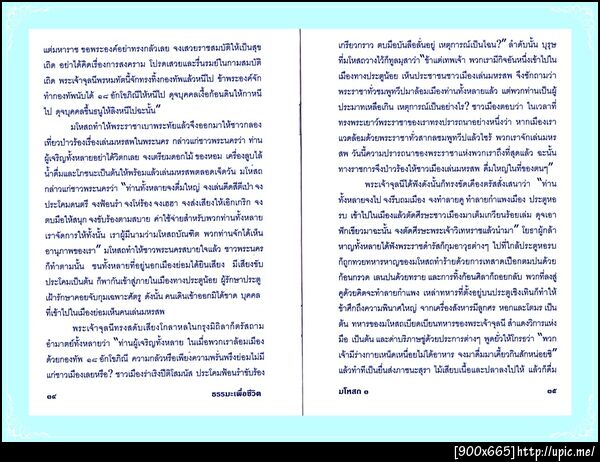 แด่มหาราช ขอพระองค์อย่าทรงกลัวเลย จงเสวยราชสมบัติให้เป็นสุข
เถิด อย่าได้คิดเรื่องการสงคราม โปรดเสวยและรื่นรมย์ในกามสมบัติ
เถิด พระเจ้าจุลนีพรหมทัตนี้จักทรงทิ้งกองทัพแล้วหนีไป ข้าพระองค์จัก
ทำกองทัพนับได้ ๑๘ อักโขภิณีให้หนีไป ดุจบุคคลเงื้อก้อนดินให้กาหนี
ไป ดุจบุคคลขึ้นธนูให้ลิงหนีไปฉะนั้น"
มโหสถทำให้พระราชาเบาพระทัยแล้วจึงออกมาให้ชาวกลอง
เที่ยวป่าวร้องเรื่องเล่นมหรสพในพระนคร กล่าวแก่ชาวพระนครว่า ท่าน
ผู้เจริญทั้งหลายอย่าได้วิตกเลย จงเตรียมดอกไม้ ของหอม เครื่องลูบไล้
น้ำดื่มและโภชนะเป็นต้นให้พร้อมแล้วเล่นมหรสพตลอดเจ็ดวัน มโหสถ
กล่าวแก่ชาวพระนครว่า "ท่านทั้งหลายจงดื่มใหญ่ จงเล่นดีดสีตีเป่า จง
ประโคมดนตรี จงฟ้อนรำ จงโห่ร้อง จงเฮฮา จงส่งเสียงให้เอิกเกริก จง
ตบมือให้สนุก จงขับร้องตามสบาย ค่าใช้จ่ายสำหรับพวกท่านทั้งหลาย
เราจัดการให้ทั้งนั้น เราผู้มีนามว่ามโหสถบัณฑิต พวกท่านจักได้เห็น
อานุภาพของเรา" มโหสถทำให้ชาวพระนครสบายใจแล้ว ชาวพระนคร
ก็ทำตามนั้น ชนทั้งหลายที่อยู่นอกเมืองย่อมได้ยินเสียง มีเสียงขับ
ประโคมเป็นต้น ก็พากันเข้าสู่ภายในเมืองทางประตูน้อย ผู้รักษาประตู
เฝ้ารักษาคอยจับกุมเฉพาะศัตรู ดังนั้น คนเดินเข้าออกมิได้ขาด บุคคล
ที่เข้าไปในเมืองย่อมเห็นคนเล่นมหรสพ
พระเจ้าจุลนีทรงสดับเสียงโกลาหลในกรุงมิถิลาก็ตรัสถาม
อำมาตย์ทั้งหลายว่า "ท่านผู้เจริญทั้งหลาย ในเมื่อพวกเราล้อมเมือง
ด้วยกองทัพ ๑๘ อักโขภิณี ความกลัวหรือเพียงความพรั่นพรึงย่อมไม่มี
แก่ชาวเมืองเลยหรือ? ชาวเมืองร่าเริงปีติโสมนัส ประโคมฟ้อนรำขับร้อง
๓๔ ธรรมะเพื่อชีวิต
เกรียวกราว ตบมือบันลือลั่นอยู่ เหตุการณ์เป็นไฉน?" ลำดับนั้น บุรุษ
ที่มโหสถวางไว้ก็ทูลมุสาว่า "ข้าแต่เทพเจ้า พวกเรามีกิจอันหนึ่งเข้าไปใน
เมืองทางประตูน้อย เห็นประชาชนชาวเมืองเล่นมหรสพ จึงซักถามว่า
พระราชาทั่วชมพูทวีปมาล้อมเมืองท่านทั้งหลายแล้ว แต่พวกท่านเป็นผู้
ประมาทเหลือเกิน เหตุการณ์เป็นอย่างไร? ชาวเมืองตอบว่า ในเวลาที่
ทรงพระเยาว์พระราชาของเราทรงปรารถนาอย่างหนึ่งว่า หากเมืองเรา
แวดล้อมด้วยพระราชาทั่วสากลชมพูทวีปแล้วไซร้ พวกเราจักเล่นมหร
สพ วันนี้ความปรารถนาของพระราชาแห่งพวกเราถึงที่สุดแล้ว ฉะนั้น
ทางราชการจึงป่าวร้องให้ชาวเมืองเล่นมหรสพ ดื่มใหญ่ในที่ของตนๆ"
พระเจ้าจุลนีได้ฟังดังนั้นก็ทรงขัดเคืองตรัสสั่งเสนาว่า "ท่าน
ทั้งหลายจงไป จงรีบถมเมือง จงทำลายคู ทำลายกำแพงเมือง ประตูหอ
รบ เข้าไปในเมืองแล้วตัดศีรษะชาวเมืองมาเต็มเกวียนร้อยเล่ม ดุจเอา
ฟักเขียวมาฉะนั้น จงตัดศีรษะพระเจ้าวิเทหราชแล้วนำมา" โยธาผู้กล้า
หาญทั้งหลายได้ฟังพระราชดำรัสก็กุมอาวุธต่างๆ ไปที่ใกล้ประตูหอรบ
ก็ถูกทวยทหารหาญของมโหสถทำร้ายด้วยการเทสาดเปือกตมปนด้วย
ก้อนกรวด เลนปนด้วยทราย และการทิ้งก้อนศิลาก็ถอยกลับ พวกที่ลงสู่
คูด้วยคิดจะทำลายกำแพง เหล่าทหารที่ตั้งอยู่บนประตูเชิงเทินก็ทำให้
ข้าศึกถึงความพินาศใหญ่ จากเครื่องสังหารมีลูกศร หอกและโตมร เป็น
ต้น ทหารของมโหสถเบียดเบียนทหารของพระเจ้าจุลนี สำแดงวิการแห่ง
มือ เป็นต้น และด่าบริภาษขู่ด้วยประการต่างๆ พูดยั่วให้โกรธว่า "พวก
เจ้ามีร่างกายเหน็ดเหนื่อยไม่ได้อาหาร จงมาดื่มมาเคี้ยวกินสักหน่อยซิ"
แล้วทำทีเป็นยื่นส่งภาชนะสุรา ไม้เสียบเนื้อและปลาลงไปให้ แล้วก็ดื่ม
มโหสถ ๑ ๓๕
[900x665] http://upic.me/